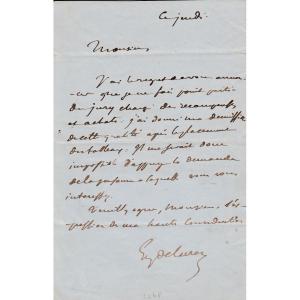 ce jeudi.
Monsieur
J'ai le regret de vous annon-
cer que je ne fais point partie
du jury chargé des récompenses
et achats. j'ai donné ma démission
de cette qualité après le placement
des tableaux. Il me serait donc
impossible d'appuyer la demande
de la personne à laquelle vous vous
intéressez.
Veuillez agréer, Monsieur, l'ex-
pression de ma haute considération
Eug Delacroix